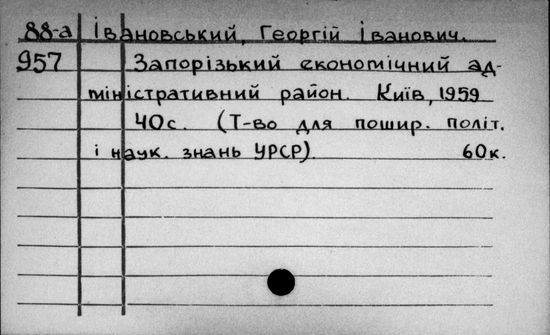 88-а Івановський, Георгій Іванович.
957 Запорізький економічний ад-
міністративний район. Київ, 1959
40с. (Т-во для пошир. політ.
і наук. знань УРСР). 60к.